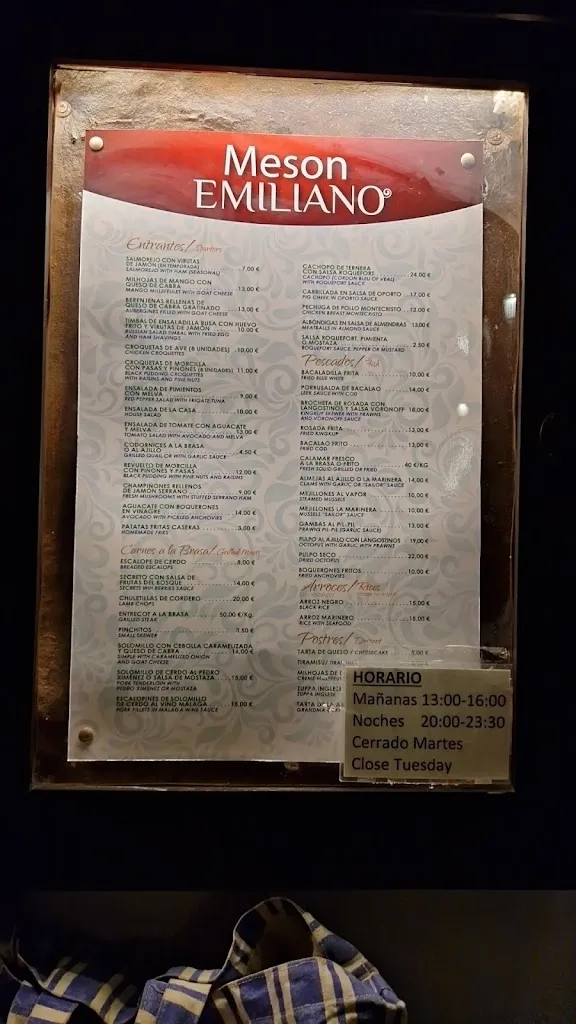 Meson
EMILIANO
Entrantes/ Starters
SALMOREJO CON VIRUTAS
DE JAMÓN (EN TEMPORADA)
SALMOREJO WITH HAM (SEASONAL) 7,00 €
MILHOJAS DE MANGO CON
QUESO DE CABRA 13,00 €
MANGO MILLEFEUILLET WITH GOAT CHEESE
BERENJENAS RELLENAS DE
QUESO DE CABRA GRATINADO 13,00 €
AUBERGINES FILLED WITH GOAT CHEESE
TIMBAL DE ENSALADILLA RUSA CON HUEVO
FRITO Y VIRUTAS DE JAMÓN 10,00 €
RUSSIAN SALAD TIMBAL WITH FRIED EGG
AND HAM SHAVINGS
CROQUETAS DE AVE (8 UNIDADES) 10,00 €
CHICKEN CROQUETTES
CROQUETAS DE MORCILLA
CON PASAS Y PIÑONES (8 UNIDADES) 11,00 €
BLACK PUDDING CROQUETTES
WITH RAISINS AND PINE NUTS
ENSALADA DE PIMIENTOS
CON MELVA 9,00 €
RED PEPPER SALAD WITH FRIGATE TUNA
ENSALADA DE LA CASA 10,00 €
HOUSE SALAD
ENSALADA DE TOMATE CON AGUACATE
Y MELVA 13,00 €
TOMATO SALAD WITH AVOCADO AND MELVA
CODORNICES A LA BRASA
O AL AJILLO 4,50 €
GRILLED QUAIL OR WITH GARLIC SAUCE
REVUELTO DE MORCILLA
CON PIÑONES Y PASAS 12,00 €
BLACK PUDDING WITH PINE NUTS AND RAISINS
CHAMPIÑONES RELLENOS
DE JAMÓN SERRANO 9,00 €
FRESH MUSHROOMS WITH STUFFED SERRANO HAM
AGUACATE CON BOQUERONES
EN VINAGRE 14,00 €
AVOCADO WITH PICKLED ANCHOVIES
PATATAS FRITAS CASERAS 3,00 €
HOMEMADE FRIES
Carnes a la Brasa/
ESCALOPE DE CERDO 8,00 €
BREADED ESCALOPE
SECRETO CON SALSA DE
FRUTAS DEL BOSQUE 14,00 €
SECRETS WIH BERRIES SAUCE
CHULETILLAS DE CORDERO 20,00 €
LAMB CHOPS
ENTRECOT A LA BRASA 50,00 €/Kg.
GRILLED STEAK
PINCHITOS 3,50 €
SMALL SKEWER
SOLOMILLO CON CEBOLLA CARAMELIZADA
Y QUESO DE CABRA 14,00 €
SIMPLE WITH CARAMELIZED ONION
AND GOAT CHEESE
SOLOMILLO DE CERDO AL PEDRO
XIMÉNEZ O SALSA DE MOSTAZA 15,00 €
PORK TENDERLOIN WITH
PEDRO XIMENES OR MOSTAZA
ESCALOPINES DE SOLOMILLO
DE CERDO AL VINO MÁLAGA 15,00 €
PORK FILLETS DE MALAGA WINE SAUCE
CACHOPO DE TERNERA
CON SALSA ROQUEFORT 24,00 €
CACHOPO (CORDON BLEU OF VEAL)
WITH ROQUEFORT SAUCE
CARRILLADA EN SALSA DE OPORTO 17,00 €
PIG CHEEK IN OPORTO SAUCE
PECHUGA DE POLLO MONTECRISTO 12,00 €
CHICKEN BREAST MONTECRISTO
ALBÓNDIGAS EN SALSA DE ALMENDRAS 13,00 €
MEATBALLS IN ALMOND SAUCE
SALSA ROQUEFORT, PIMIENTA
O MOSTAZA 2,50 €
ROQUEFORT SAUCE, PEPPER OR MUSTARD
Pescados/ Fish
BACALADILLA FRITA 10,00 €
FRIED BLUE WHITE
PORRUSALDA DE BACALAO 14,00 €
LEEK SAUCE WITH COD
BROCHETA DE ROSADA CON
LANGOSTINOS Y SALSA VORONOFF 18,00 €
KINGKLIP SKEWER WITH PRAWNS
AND VORONOFF SAUCE
ROSADA FRITA 13,00 €
FRIED KINGKLIP
BACALAO FRITO 13,00 €
FRIED COD
CALAMAR FRESCO
A LA BRASA O FRITO 40 €/KG
FRESH SQUID GRILLED OR FRIED
ALMEJAS AL AJILLO O LA MARINERA 14,00 €
CLAMS WITH GARLIC OR "SAILOR" SAUCE
MEJILLONES AL VAPOR 10,00 €
STEAMED MUSSELS
MEJILLONES LA MARINERA 10,00 €
MUSSELS "SAILOR" SAUCE
GAMBAS AL PIL-PIL 13,00 €
PRAWNS PIL-PIL (GARLIC SAUCE)
PULPO AL AJILLO CON LANGOSTINOS 19,00 €
OCTOPUS WITH GARLIC WITH PRAWNS
PULPO SECO 22,00 €
DRIED OCTOPUS
BOQUERONES FRITOS 10,00 €
FRIED ANCHOVIES
Arroces/ Rices
ARROZ NEGRO 15,00 €
BLACK RICE
ARROZ MARINERO 15,00 €
RICE WITH SEAFOOD
Postres/ Dessert
TARTA DE QUESO / CHEESECAKE 5,00 €
TIRAMISÚ/
MILHOJAS DE
ZUPPA INGLESE
ZUPPA INGLESE
TARTA DE LA A
GRANDMA
HORARIO
Mañanas 13:00-16:00
Noches 20:00-23:30
Cerrado Martes
Close Tuesday